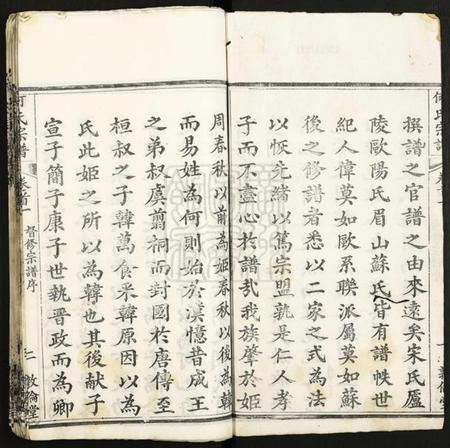 何氏宗譜
撰譜之官譜之由來遠矣宋氏廬
陵歐陽氏眉山蘇氏皆有譜帙世
紀人偉莫如歐系聯派屬莫如蘇
後之修譜者悉以二家之式為法
以恢先緒以篤宗盟孰是仁人孝
子而不盡心於譜哉我族肇於姬
周春秋以前為姬春秋以後為韓
而易姓為何則始於漢憶昔成王
之弟叔虞翦桐而封國於唐傳至
桓叔之子韓萬食采韓原因以為
氏此姬之所以為韓也其後獻子
宣子簡子康子世執晋政而為卿
何氏宗譜
卷首
督修宗譜序
二
敦倫堂